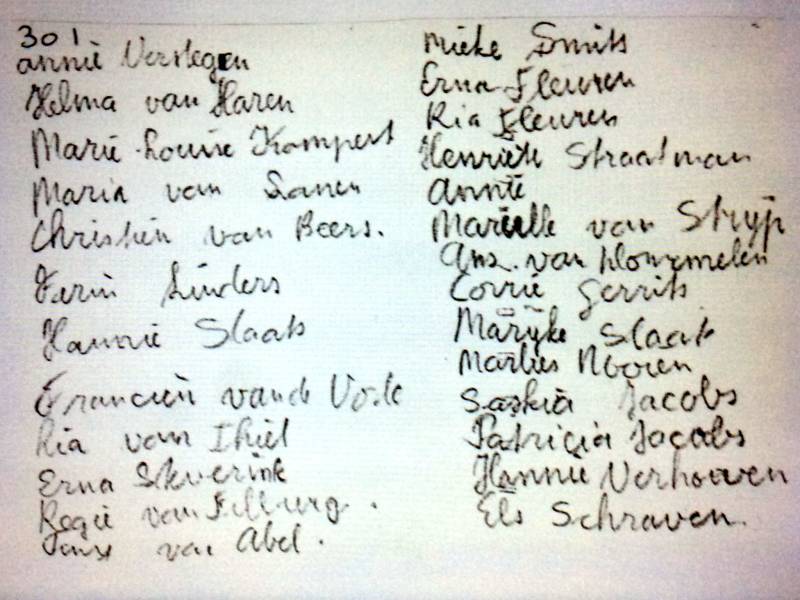 301
annie Verstegen
Helma van Haren
Marie-Louise Kompert
Maria van Lanen
Christien van Beers.
Linders
Hannie Slaats
Francien vande
Ria van Thiel
Erna
Regie van Tilburg.
van Abel.
Mieke Smits
Erna Fleuren
Ria Fleuren
Henriëtte Straatman
Annie
Mariëlle van Stryp
Ans. van
Corrie Gerrits
Maryke Slaat
Marlies Nooren
Saskia Jacobs
Patricia Jacobs
Hannie Verhoeven
Els Schraven.